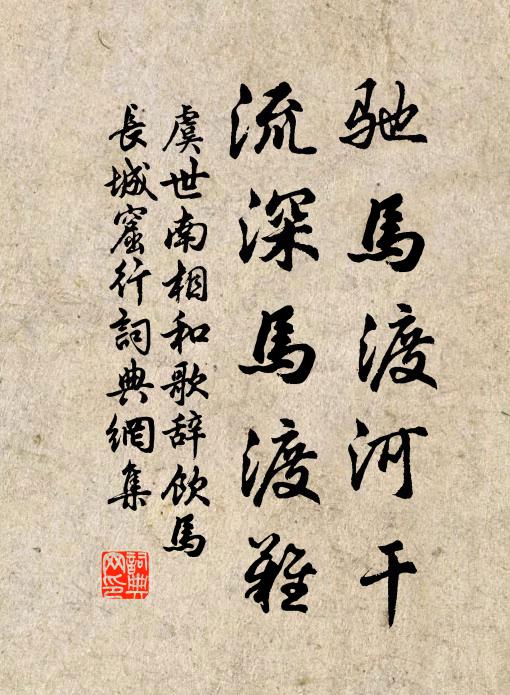 馳馬渡河干
流深馬渡難
虞世南相和歌辞飲馬
長城窟行詞典網集
詞典
网印